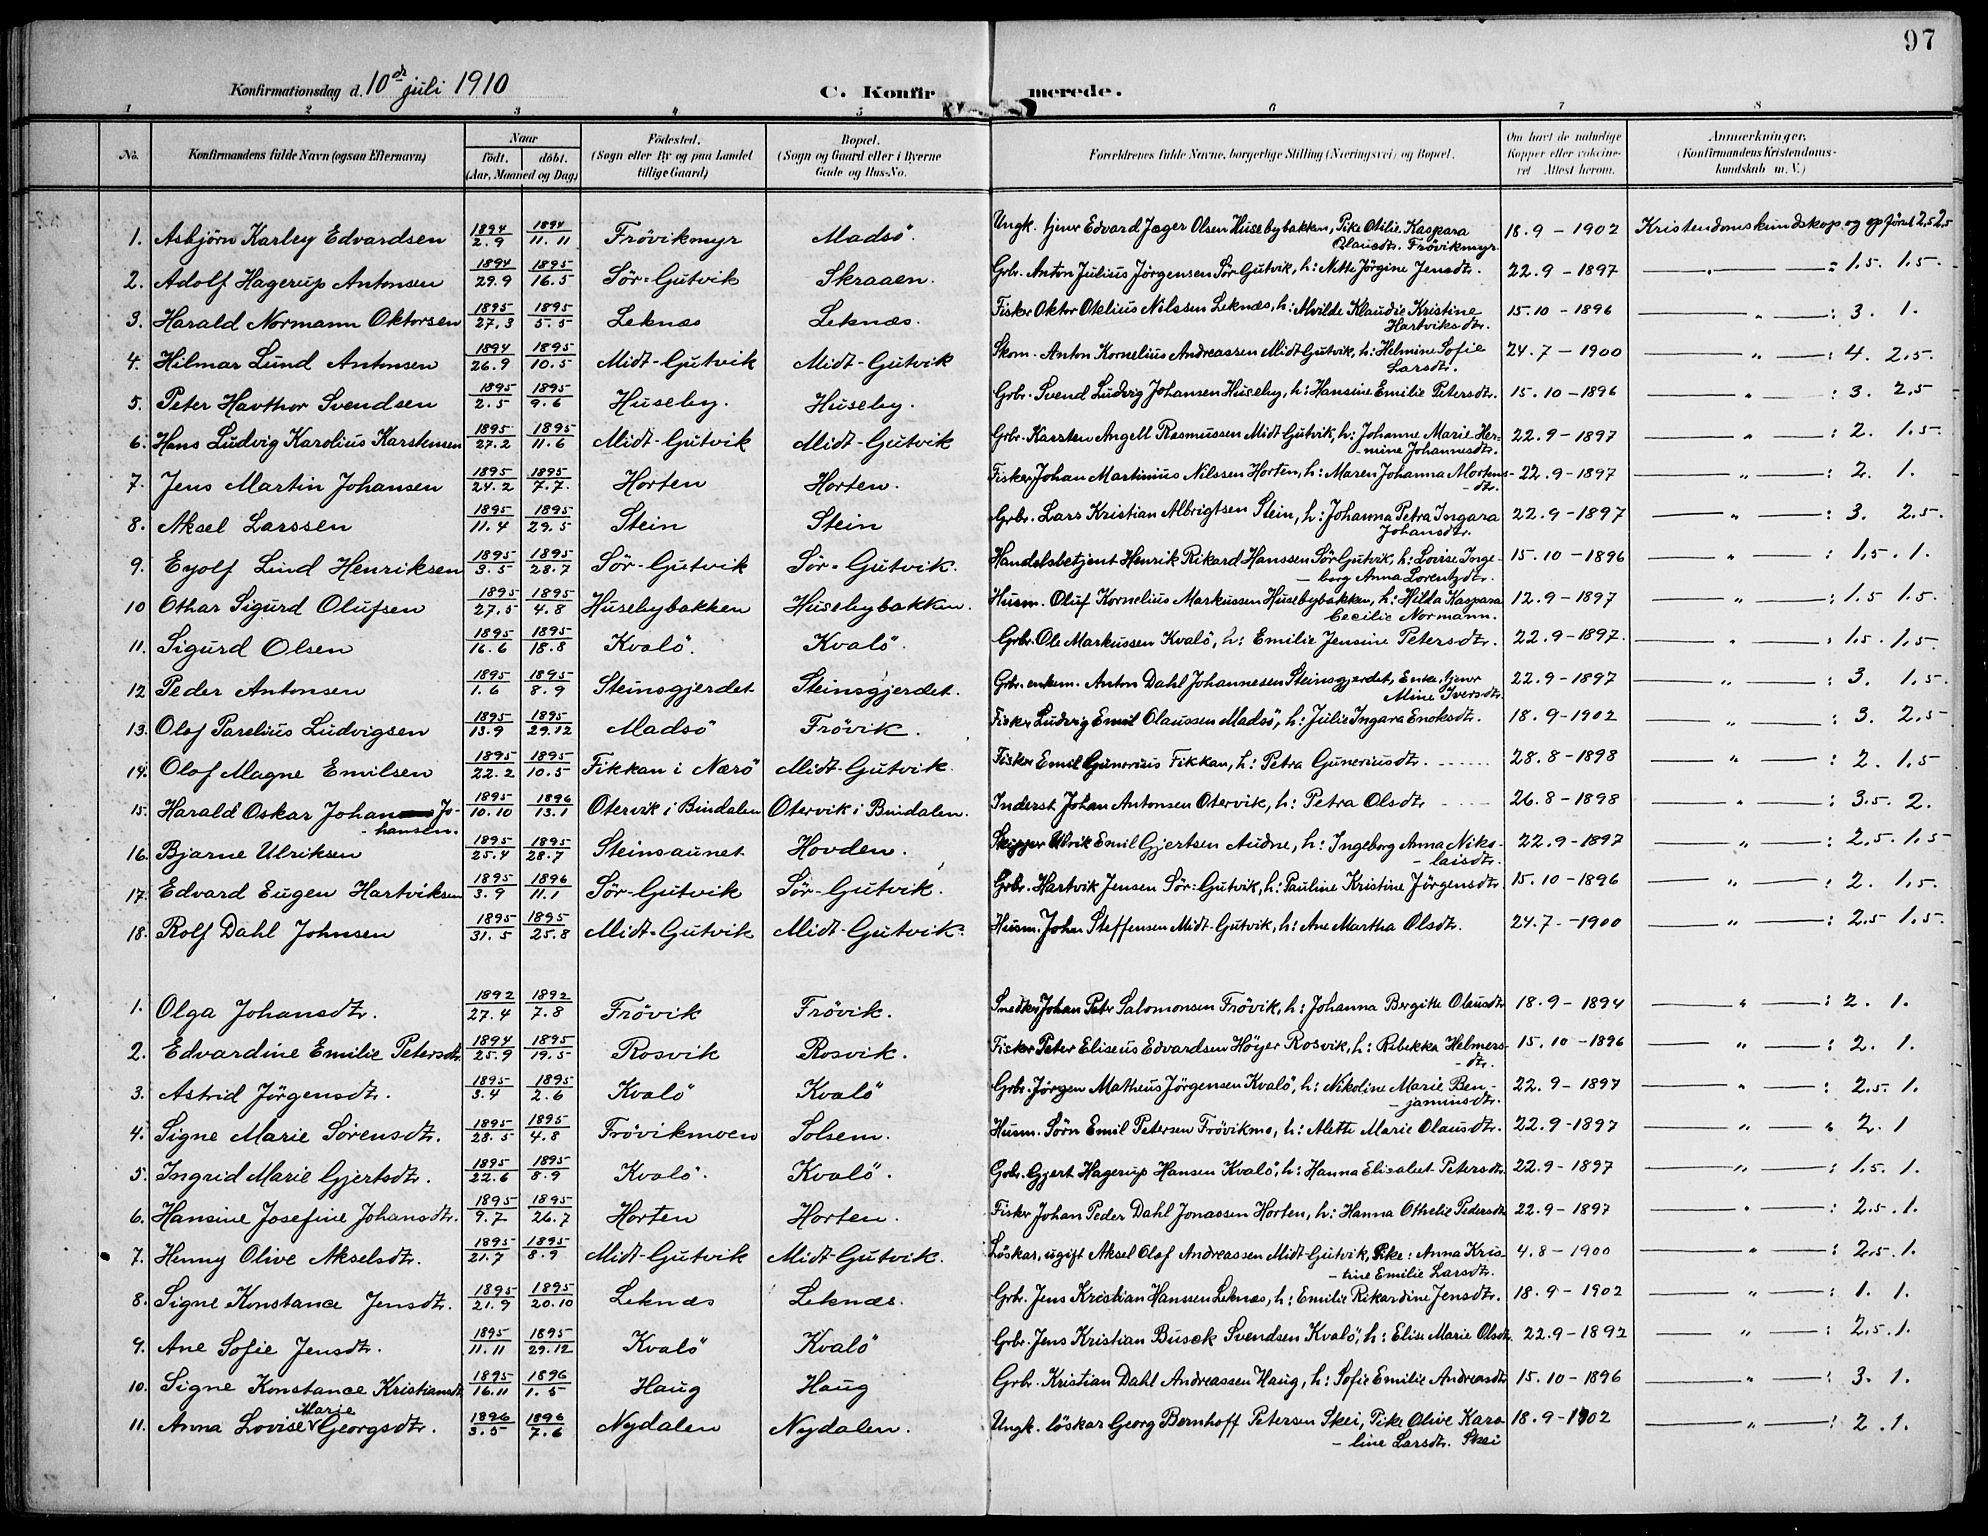 97
Konfirmationsdag d. 10de juli 1910 C. Konfirmerede.
1 2 3 4 5 6 7 8
No. Konfirmandens fulde Navn (ogsaa Efternavn) Naar født. døbt. (Aar, Maaned og Dag) Fødested. (Sogn eller By og paa Landet tillige Gaard) Bopæl. (Sogn og Gaard eller i Byerne Gade og Hus-No. Forældrenes fulde Navne, borgerlige Stilling (Næringsvei) og Bopæl. Om havt de naturlige Kopper eller vakcineret Attest herom. Anmærkninger. (Konfirmandens Kristendomskundskab m. V.)
1. Asbjörn Karley Edvardsen 1894 2.9 1894 11.11 Frövikmyr Madsö. Ungk. tjener Edvard Jager Olsen Husebybakken, Pike Otilie Kaspara Olausdtr. Frövikmyr 18.9-1902 Kristendomskundskap og opförsel 2,5 2,5
2. Adolf Hagerup Antonsen 1894 29.9 1895 16.5 Sör-Gutvik Skraaen. Grbr. Anton Julius Jörgensen Sör-Gutvik, h: Nette Jörgine Jensdtr. 22.9-1897 — " — : 1,5. 1,5.
3. Harald Normann Oktorsen 1895 27.3 1895 5.5 Leknæs Leknæs. Fisker Oktor Otelius Nilssen Leknæs, h: Alvilde Klaudie Kristine Hartviksdtr. 15.10-1896 — " — : 3. 1.
4. Hilmar Lund Antonsen 1894 26.9 1895 10.5 Midt-Gutvik Midt-Gutvik Skom. Anton Kornelius Andreassen Midt-Gutvik, h: Helmine Sofie Larsdtr. 24.7-1900 — " — : 4. 2,5.
5. Peter Havthor Svendsen 1895 2.5 1895 9.6 Huseby. Huseby. Grbr. Svend Ludvig Johansen Huseby, h: Hansine Emilie Petersdtr. 15.10-1896 — " — : 3. 2,5
6. Hans Ludvig Karolius Karstensen 1895 27.2 1895 11.6 Midt-Gutvik Midt-Gutvik Grbr. Karsten Angell Rasmussen Midt Gutvik, h: Johanne Marie Hermine Johannesdtr. 22.9-1897 — " — : 2. 1,5.
7. Jens Martin Johansen 1895 24.2 1895 7.7. Horten Horten. Fisker Johan Martinius Nilssen Horten, h: Maren Johanna Mortensdtr. 22.9-1897 — " — : 2. 1.
8. Aksel Larssen 1895 11.4 1895 29.5 Stein Stein Grbr. Lars Kristian Albrigtsen Stein, h: Johanna Petra Ingara Johansdtr. 22.9-1897 — " — : 3. 2,5.
9. Eyolf Lind Henriksen 1895 3.5 1895 28.7 Sör-Gutvik Sör-Gutvik. Handelsbetjent Henrik Rikard Hanssen Sör Gutvik, h: Lovise Ingeborg Anna Lorentzdtr. 15.10-1896 — " — : 1,5. 1.
10 Othar Sigurd Olufsen 1895 27.5 1895 4.8 Husebybakken Husebybakken. Husm. Oluf Kornelius Markussen Husebybakken, h: Hilda Kaspara Cecilie Normann. 12.9-1897 — " — : 1,5 1,5.
11. Sigurd Olsen 1895 16.6 1895 18.8 Kvalö. Kvalö. Grbr. Ole Markussen Kvalö, h: Emilie Jensine Petersdtr. 22.9-1897. — " — : 1,5. 1,5.
12 Peder Antonsen 1895 1.6 1895 8.9 Steinsgjerdet Steinsgjerdet. Grbr. enkem. Anton Dahl Johannesen Steinsgjerdet, Enke, tjener Mine Iversdtr. 22.9-1897 — " — : 3. 1,5.
13. Olof Parelius Ludvigsen 1895 13.9 1895 29.12 Madsö Frövik. Fisker Ludvig Emil Olaussen Madsö, h: Julie Ingara Enoksdtr. 18.9-1902 — " — : 3. 2,5
14. Olof Magne Emilsen 1895 22.2 1895 10.5 Fikkan i Nærö Midt-Gutvik. Fisker Emil Gunerius Fikkan, h: Petra Guneriusdtr. 28.8-1898 — " — : 2. 1,5
15. Harald Oskar Johan Johansen. 1895 10.10 1896 13.1 Otervik i Bindalen Otervik i Bindalen. Inderst Johan Antonsen Otervik, h: Petra Olsdtr 26.8-1898 — " — : 3,5. 2.
16. Bjarne Ulriksen 1895 25.4 1895 28.7 Steinsaunet Hovden. Skipper Ulrik Emil Gjertsen Audne, h: Ingeborg Anna Nikolaisdtr. 22.9-1897 — " — : 2,5. 1,5
17. Edvard Eugen Hartviksen 1895 3.9 1896 11.1 Sör-Gutvik Sör-Gutvik. Grbr. Hartvik Jensen Sör-Gutvik, h: Pauline Kristine Jörgensdtr. 15.10-1896 — " — : 2. 1,5.
18. Rolf Dahl Johnsen 1895 31.5 1895 25.8 Midt-Gutvik Midt-Gutvik. Husm. John Steffensen Midt-Gutvik, h: Ane Martha Olsdtr. 24.7-1900 — " — : 2,5 1,5.
1. Olga Johansdtr. 1892 27.4 1892 7.8 Frövik Frövik. Snedker Johan Peter Salomonsen Frövik, h: Johanna Bergitte Olausdtr 18.9-1894 — " — : 2. 1.
2. Edvardine Emilie Petersdtr. 1894 25.9 1895 19.5 Rosvik Rosvik. Fisker Peter Eliseus Edvardsen Höyer Rosvik, h: Rebekka Helmersdtr. 15.10-1896 — " — : 2. 1.
3. Astrid Jörgensdtr. 1895 3.4 1895 2.6 Kvalö Kvalö Grbr. Jörgen Matheus Jörgensen Kvalö, h: Nikoline Marie Benjaminsdtr. 22.9-1897 — " — : 2,5. 1.
4. Signe Marie Sörensdtr. 1895 28.5 1895 4.8 Frövikmoen Solsem. Husm. Sörn Emil Petersen Frövikmo, h: Mette Marie Olausdtr. 22.9-1897 — " — " 2. 1
5. Ingrid Marie Gjertsdtr. 1895 22.6 1895 8.9 Kvalö. Kvalö. Grbr. Gjert Hagerup Hansen Kvalö, h: Hanna Elisabet Petersdtr. 22.9-1897 — " — : 1,5. 1.
6. Hansine Josefine Johansdtr. 1895 9.7 1895 26.7 Horten Horten. Fisker Johan Peder Dahl Jonassen Horten, h: Hanna Othelie Pedersdtr 22.9-1897 — " — : 2,5. 1.
7. Henny Olive Akselsdtr. 1895 21.7 1895 8.9 Midt-Gutvik Midt-Gutvik. Löskar, ugift Aksel Olof Andreassen Midt-Gutvik, Pike: Anna Kristine Emilie Larsdtr. 4.8-1900 — " — : 2,5. 1.
8. Signe Konstance Jensdtr. 1895 21.9 1895 20.10 Leknæs Leknæs. Grbr. Jens Kristian Hanssen Leknæs, h: Emilie Rikardine Jensdtr. 18.9-1902 — " — : 1. 1.
9. Ane Sofie Jensdtr. 1895 11.11 1895 29.12 Kvalö Kvalö Grbr. Jens Kristian Busck Svendsen Kvalö, h: Elise Marie Olsdtr. 22.9-1892 — " — : 2,5. 1.
10. Signe Konstance Kristiansdtr 1895 16.11 1896 1.5 Haug Haug Grbr. Kristian Dahl Andreassen Haug, h: Sofie Emilie Andreasdtr 15.10-1896 — " — : 3. 1.
11. Anna Lovise Marie Georgsdtr. 1896 3.5 1896 7.6 Nydalen Nydalen. Ungk. löskar Georg Bernhoff Petersen Skei, Pike Olive Karoline Larsdtr. Skei 18.9-1902 — " — : 2. 1.